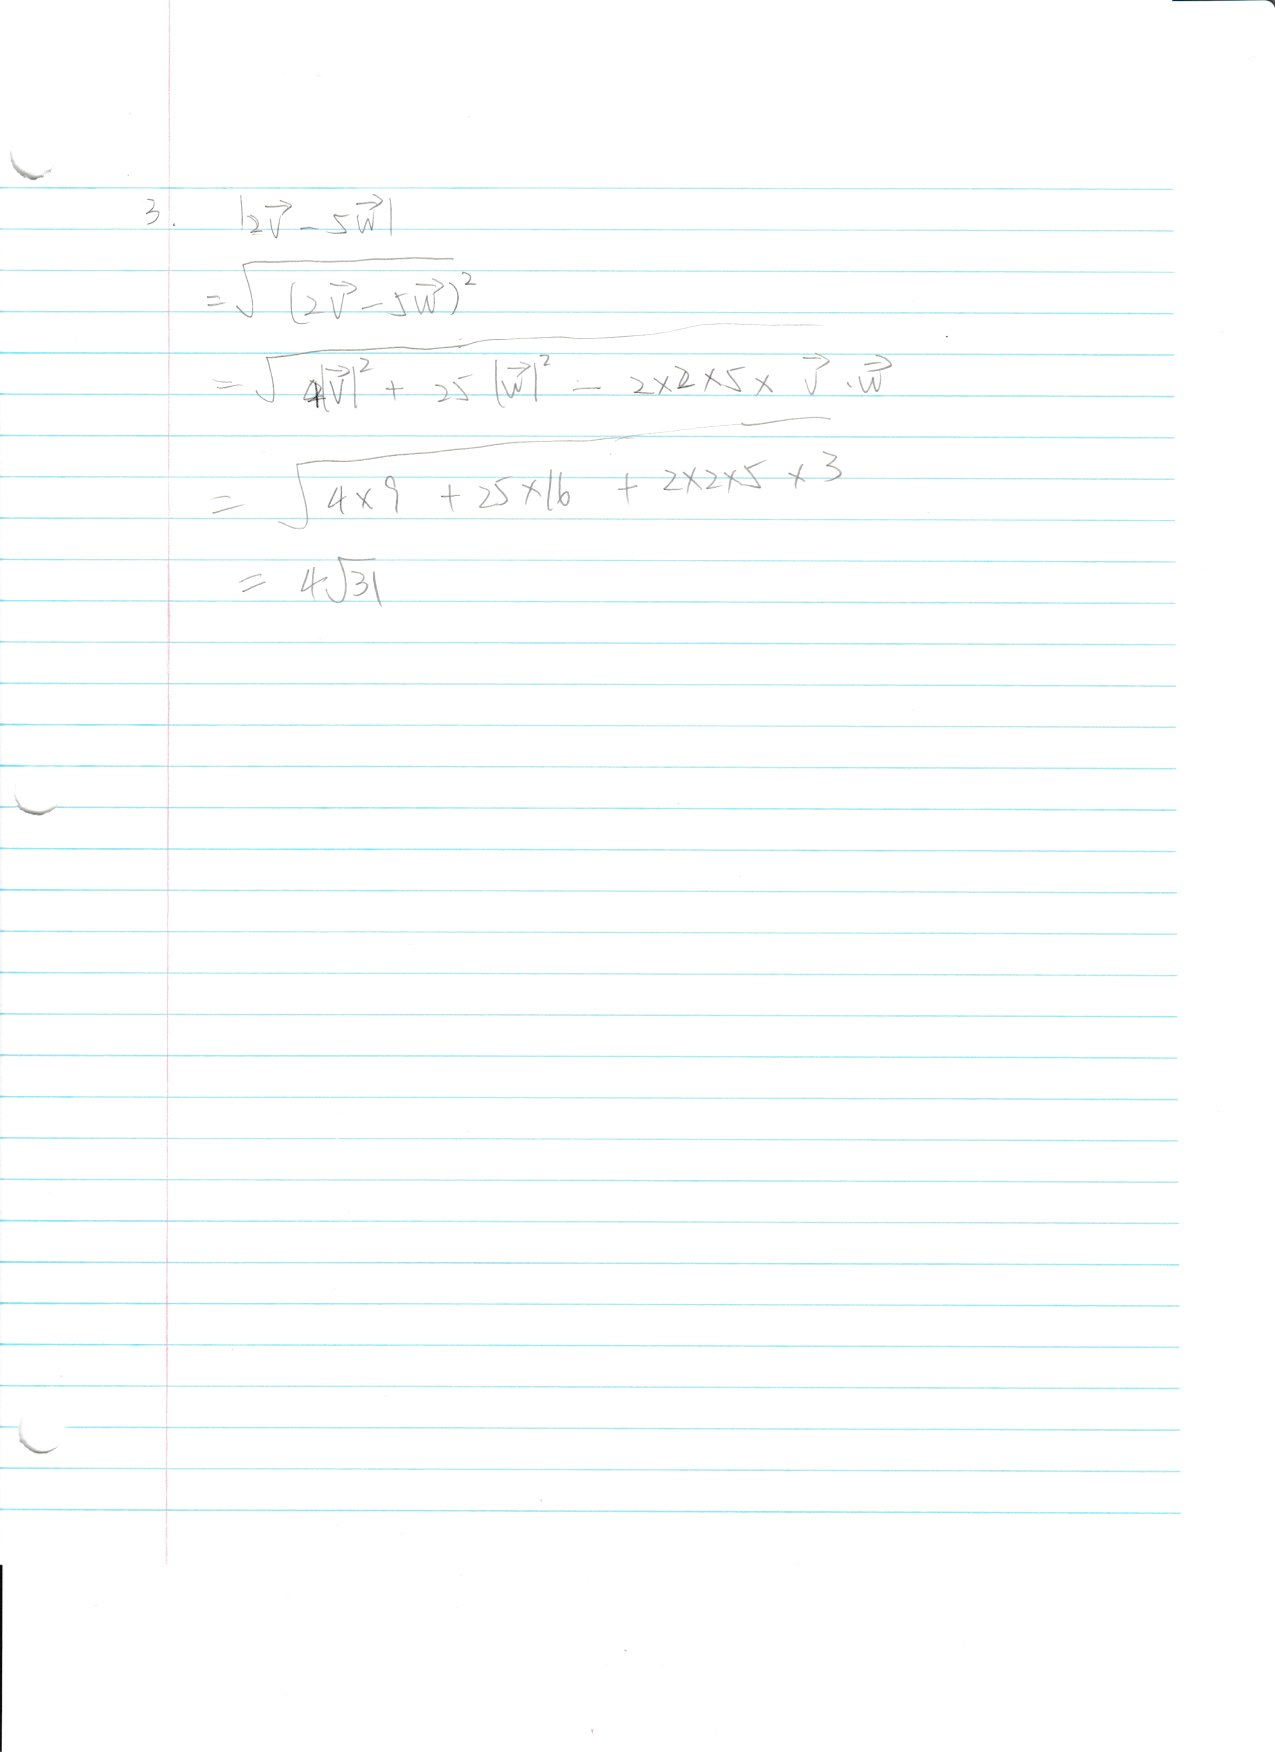 3. |2v⃗ - 5w⃗|
= √(2v⃗ - 5w⃗)²
= √4|v⃗|² + 25|w⃗|² - 2×2×5× v⃗ · w⃗
= √4×9 + 25×16 + 2×2×5×3
= 4√31